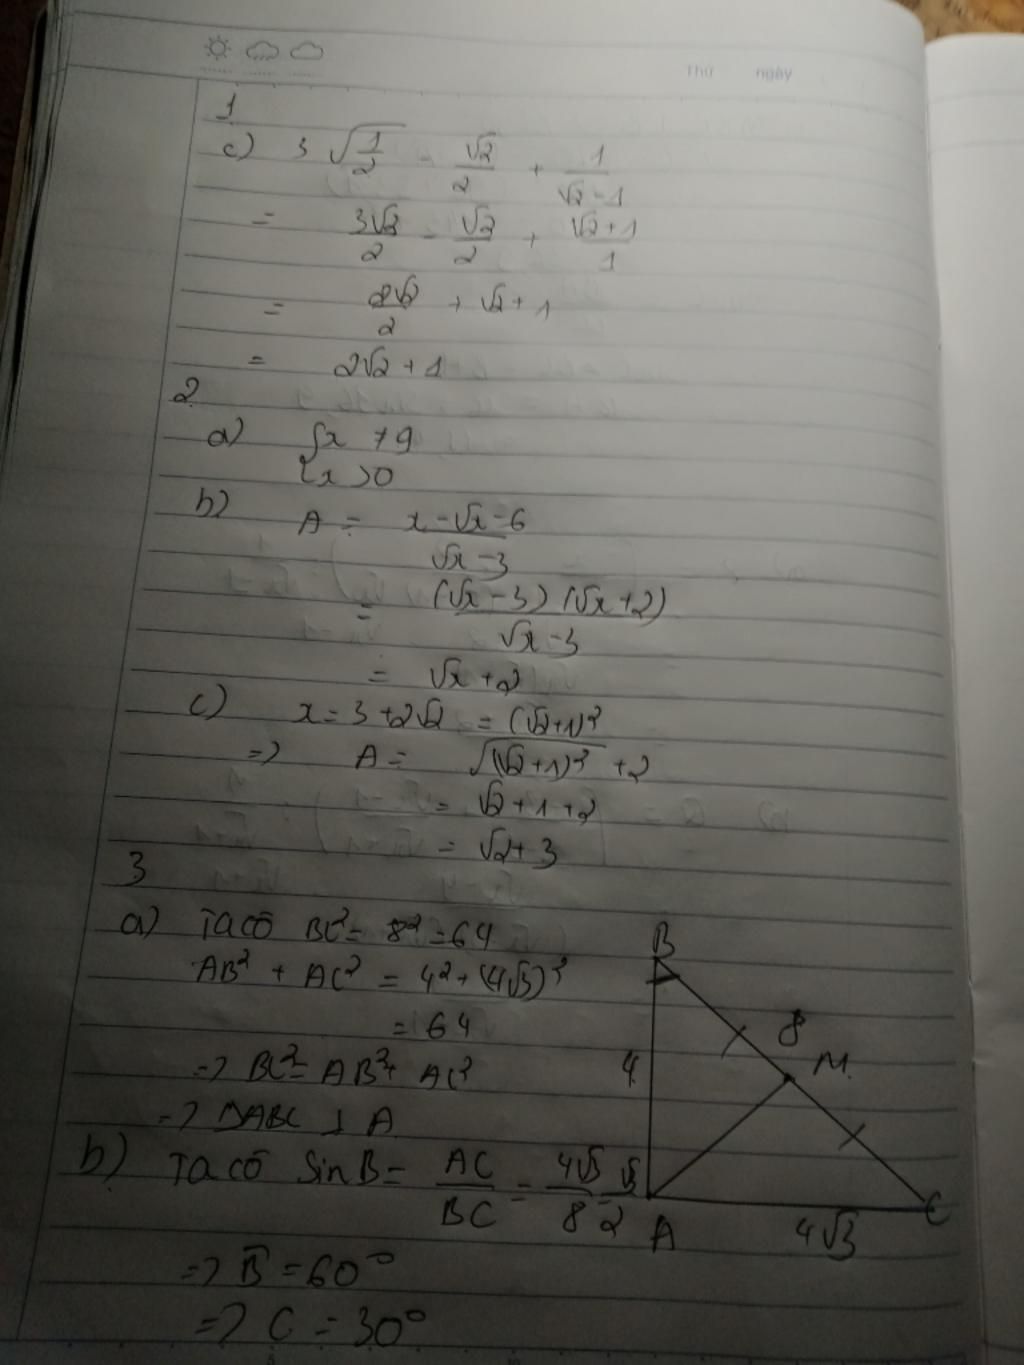 Thứ ngày
1
c) 3 √(1/2) - √2/2 + 1/(√2-1)
= 3√2/2 - √2/2 + (√2+1)/1
= 2√2/2 + √2+1
= 2√2+1
2
a) { x ≠ 9
x > 0
b) A = (x-√x-6)/(√x-3)
= (√x-3)(√x+2)/(√x-3)
= √x+2
c) x = 3+2√2 = (√2+1)²
=> A = √((√2+1)²) +2
= √2+1+2
= √2+3
3
a) Ta có BC² = 8² = 64
AB² + AC² = 4² + (4√3)²
= 64
=> BC² = AB² + AC²
=> ΔABC ⊥ A
b) Ta có Sin B = AC/BC = 4√3/8 = √3/2
=> B = 60°
=> C = 30°
B
8
M
4
A
4√3
C